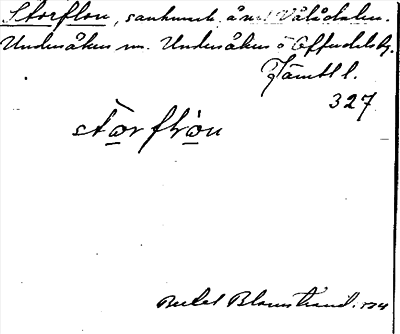 Storflon, sankmark å m Vålådalen.
Undersåkers sn. Undersåkers o Offerdals tg.
Jämtl l.
327
storflon
Blomstrand.